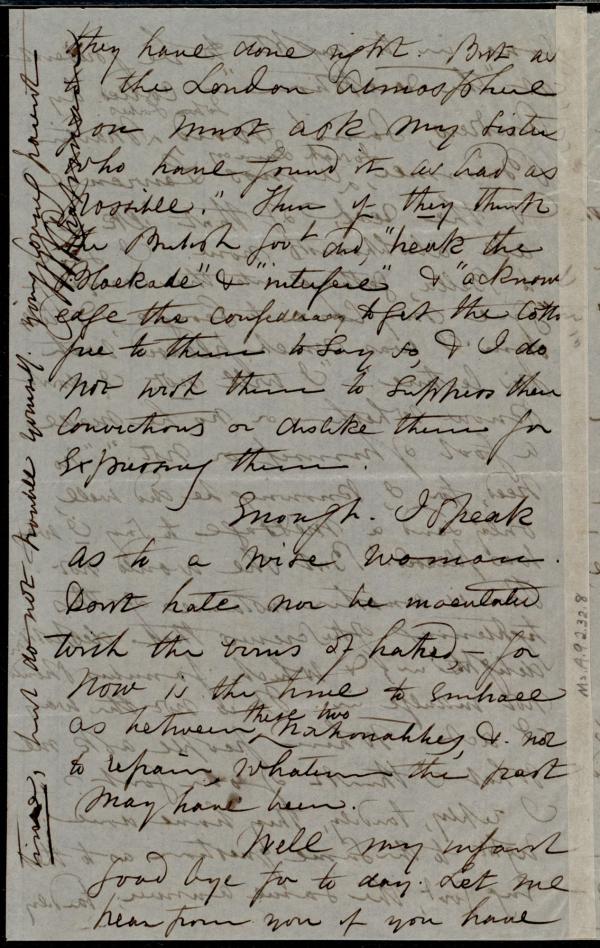 they have done right. But as
to the London Atmosphere
you must ask my sister
who have found it as bad as
possible." Then if they think
the British Govt did, "break the
Blockade" & "interfere" & "acknow
edge the confederacy to get the Cotto
free to them to say so, & I do
not wish them to suppress their
Convictions or dislike them for
Expressing them.
Enough. I speak
as to a wise woman.
Dont hate nor be inoculated
with the virus of hatred, – for
Now is the time to Embrace
as between these two Nationalities, & not
to repair whatever the past
may have been.
Well my infant
good bye for to day. Let me
hear from you if you have
time, but do not trouble yourself. Your loving parent
Ms.A.9.2.32.8